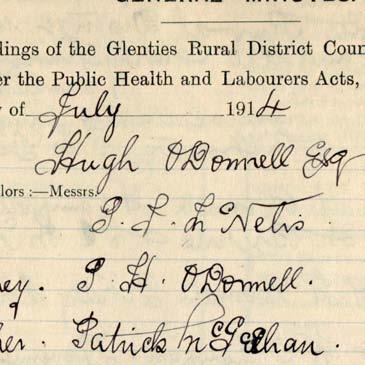 GENERAL MINUTES.
dings of the Glenties Rural District Coun
er the Public Health and Labourers Acts,
y of July 1914
Hugh O'Donnell Esq
lors :—Messrs.
P. J. McNelis
ey. P. H. O'Donnell.
her. Patrick McGeehan.